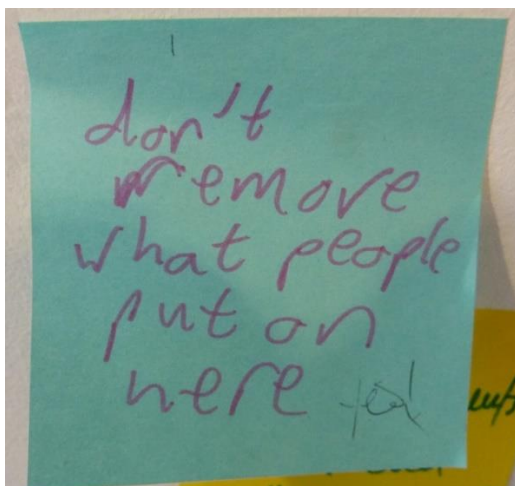 don't
remove
what people
put on
here